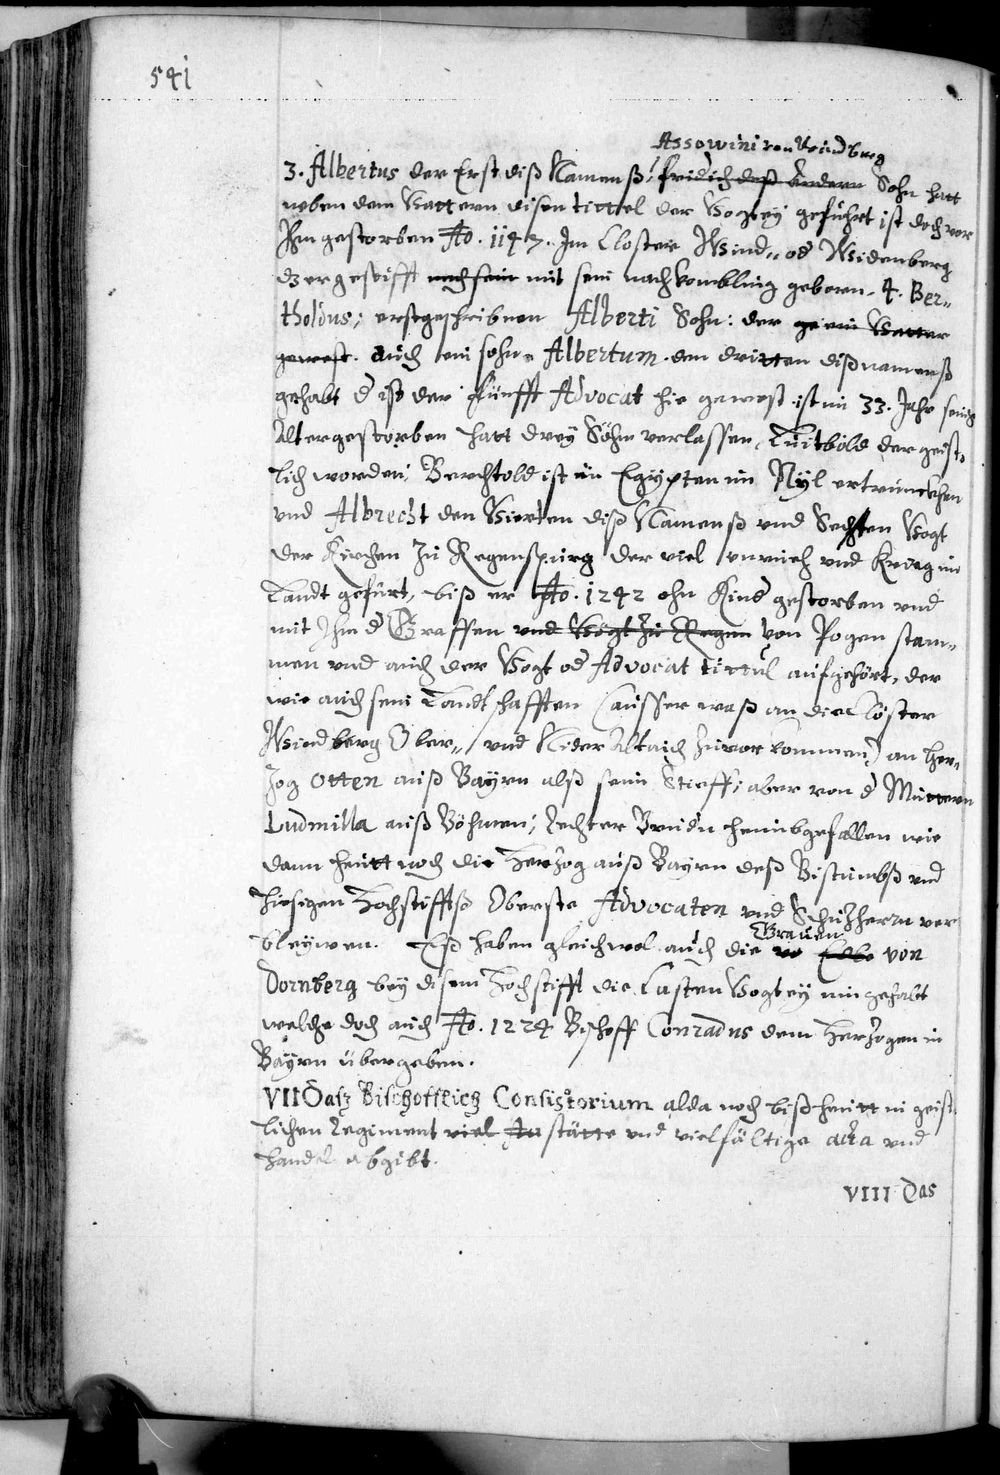 541
Assowini von Windberg
3. Albertus der Erst diß Namenß, fridrich deß Andern Sohn hatt
neben dem Vattern disen tittel der Vogtey geführt ist doch vor
Ihm gestorben Ao. 1147. Im Closter Wind„ od Widenberg
dz er gestifft nach sein mit sein nachkombling geborn. 4. Ber„
tholdus; erstgeschribnen Alberti Sohn: der ge ein Vatter
gewest. auch ein sohn Albertum den dritten diß namenß
gehabt d ist der fünfft Advocat hie gewest ist im 33. Jahr seines
Alter gestorben hatt drey Söhn verlassen, Luitbold der geist„
lich worden; Berchtold ist in Egypten im Nyl ertrunckhen
vnd Albrecht den Vierten diß Namenß vnd Sechsten Vogt
der Kirchen Zu Regenspurg der viel vnrueh vnd Krieg im
Landt gefürt, biß er Ao. 1242 ohn Kind gestorben vnd
mit Ihm d Graffen vnd Vögt Zu Regen von Pogen stam„
men vnd auch der Vogt od Advocat tittul aufgehört, der
wie auch sein Landtschafften (ausser waß an die Clöster
Windberg Ober„ vnd Nider Altaich zuvor kommen) an Her„
zog Otten auß Bayrn alß seim Stieff; aber von d Muttern
Ludmilla auß Böhmen; rechter Brudn heimbgefallen wie
dann heutt noch die Herzog auß Bayrn deß Bistumbß vnd
hiesigen Hochstifftß Oberste Advocaten vnd Schuzherrn ver
bleyben. Eß haben gleichwol auch die vo Edle von
Grauen
Dornberg bey disem Hochstifft die Casten Vogtey inn gehabt
welche doch auch Ao. 1224 Bischoff Conradus dem Herzogen in
Bayrn übergeben.
VII Dasz Bischofflich Consistorium alda noch biß heutt in geist„
lichen regiment viel Zu stätte vnd vielfältige acta vnd
handel abgibt.
VIII Das